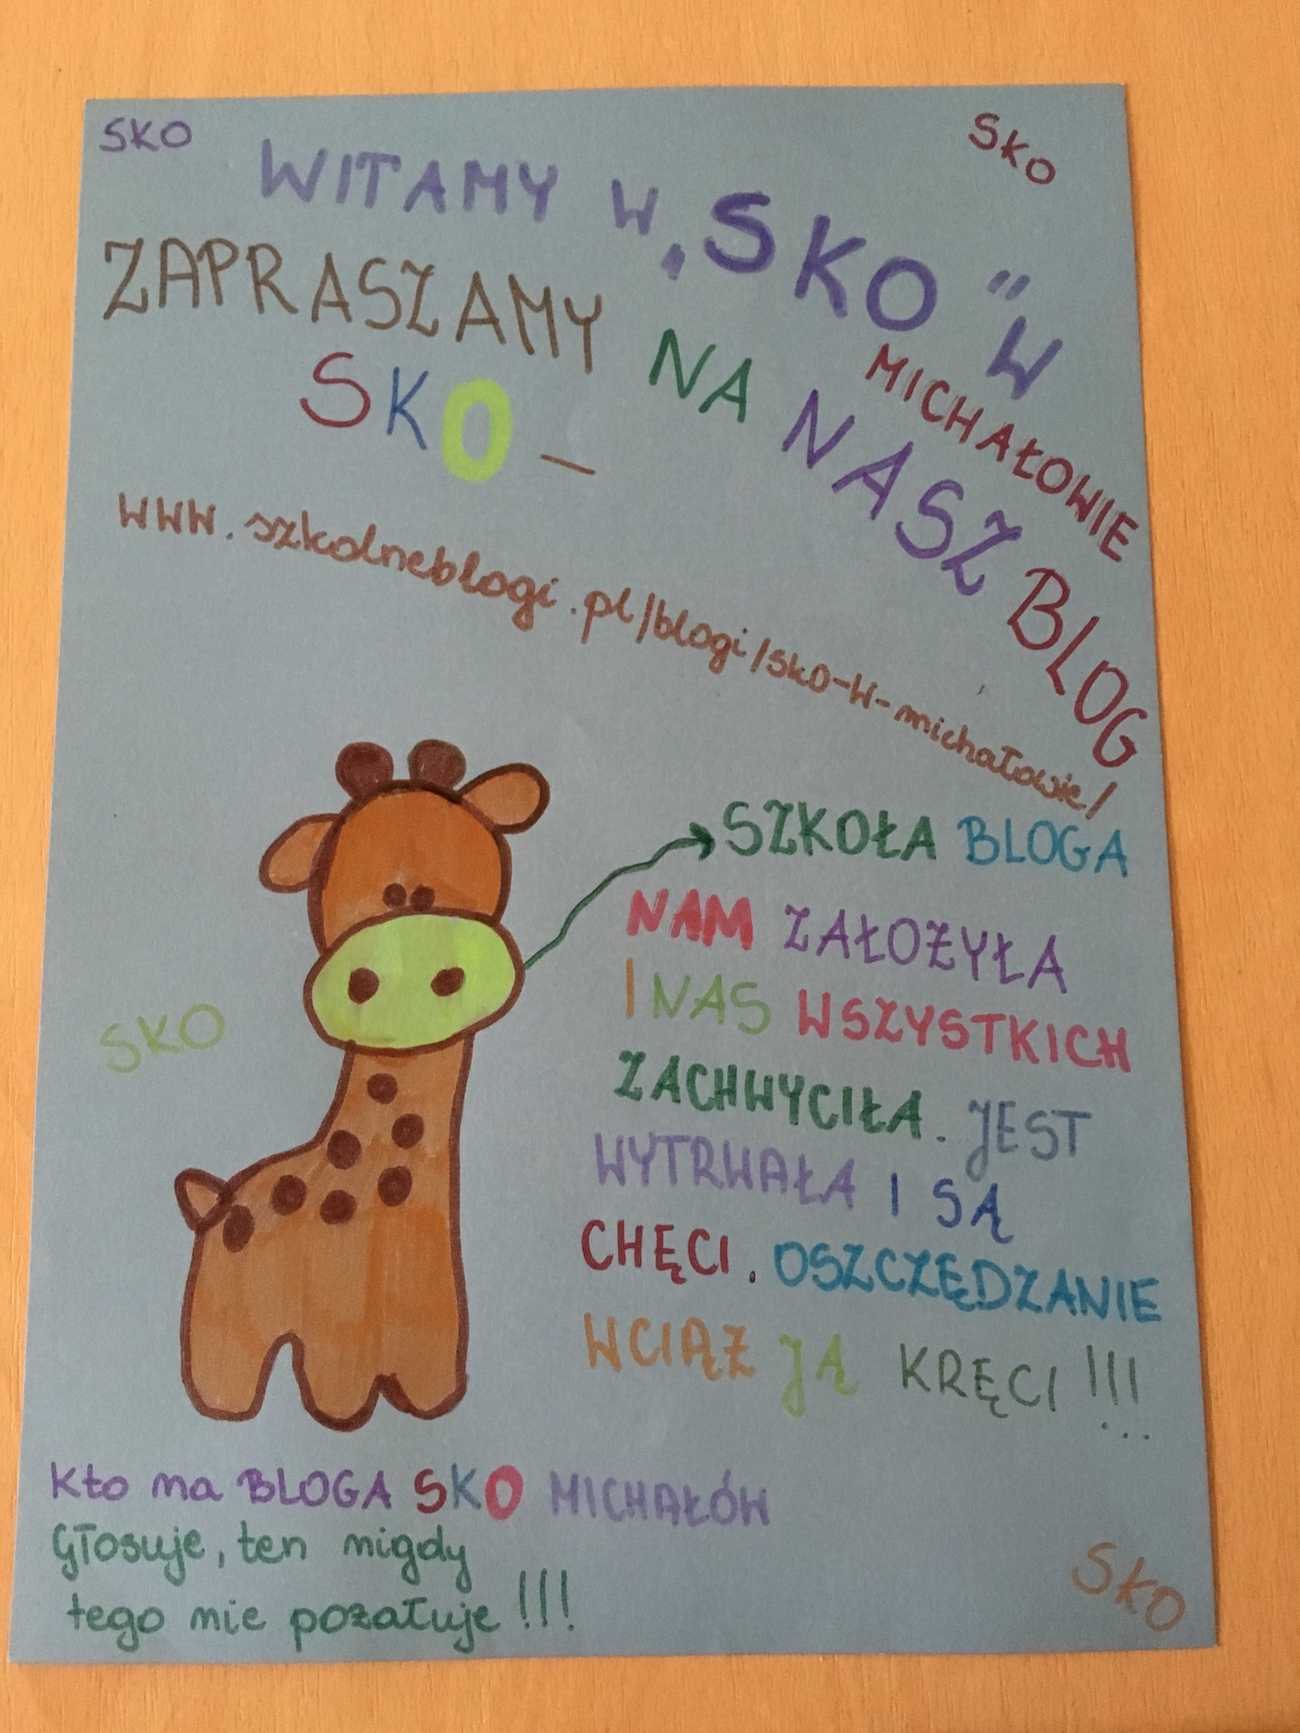 SKO
SKO
WITAMY W „SKO" W
MICHAŁOWIE
ZAPRASZAMY NA NASZ BLOG
SKO –
www.szkolneblogi.pl/blogi/sko-w-michałowie/
SZKOŁA BLOGA
NAM ZAŁOŻYŁA
I NAS WSZYSTKICH
ZACHWYCIŁA. JEST
WYTRWAŁA I SĄ
CHĘCI. OSZCZĘDZANIE
WCIĄŻ JĄ KRĘCI!!!...
SKO
Kto na BLOGA SKO MICHAŁÓW
Głosuje, ten nigdy
tego nie pożałuje!!!
SKO